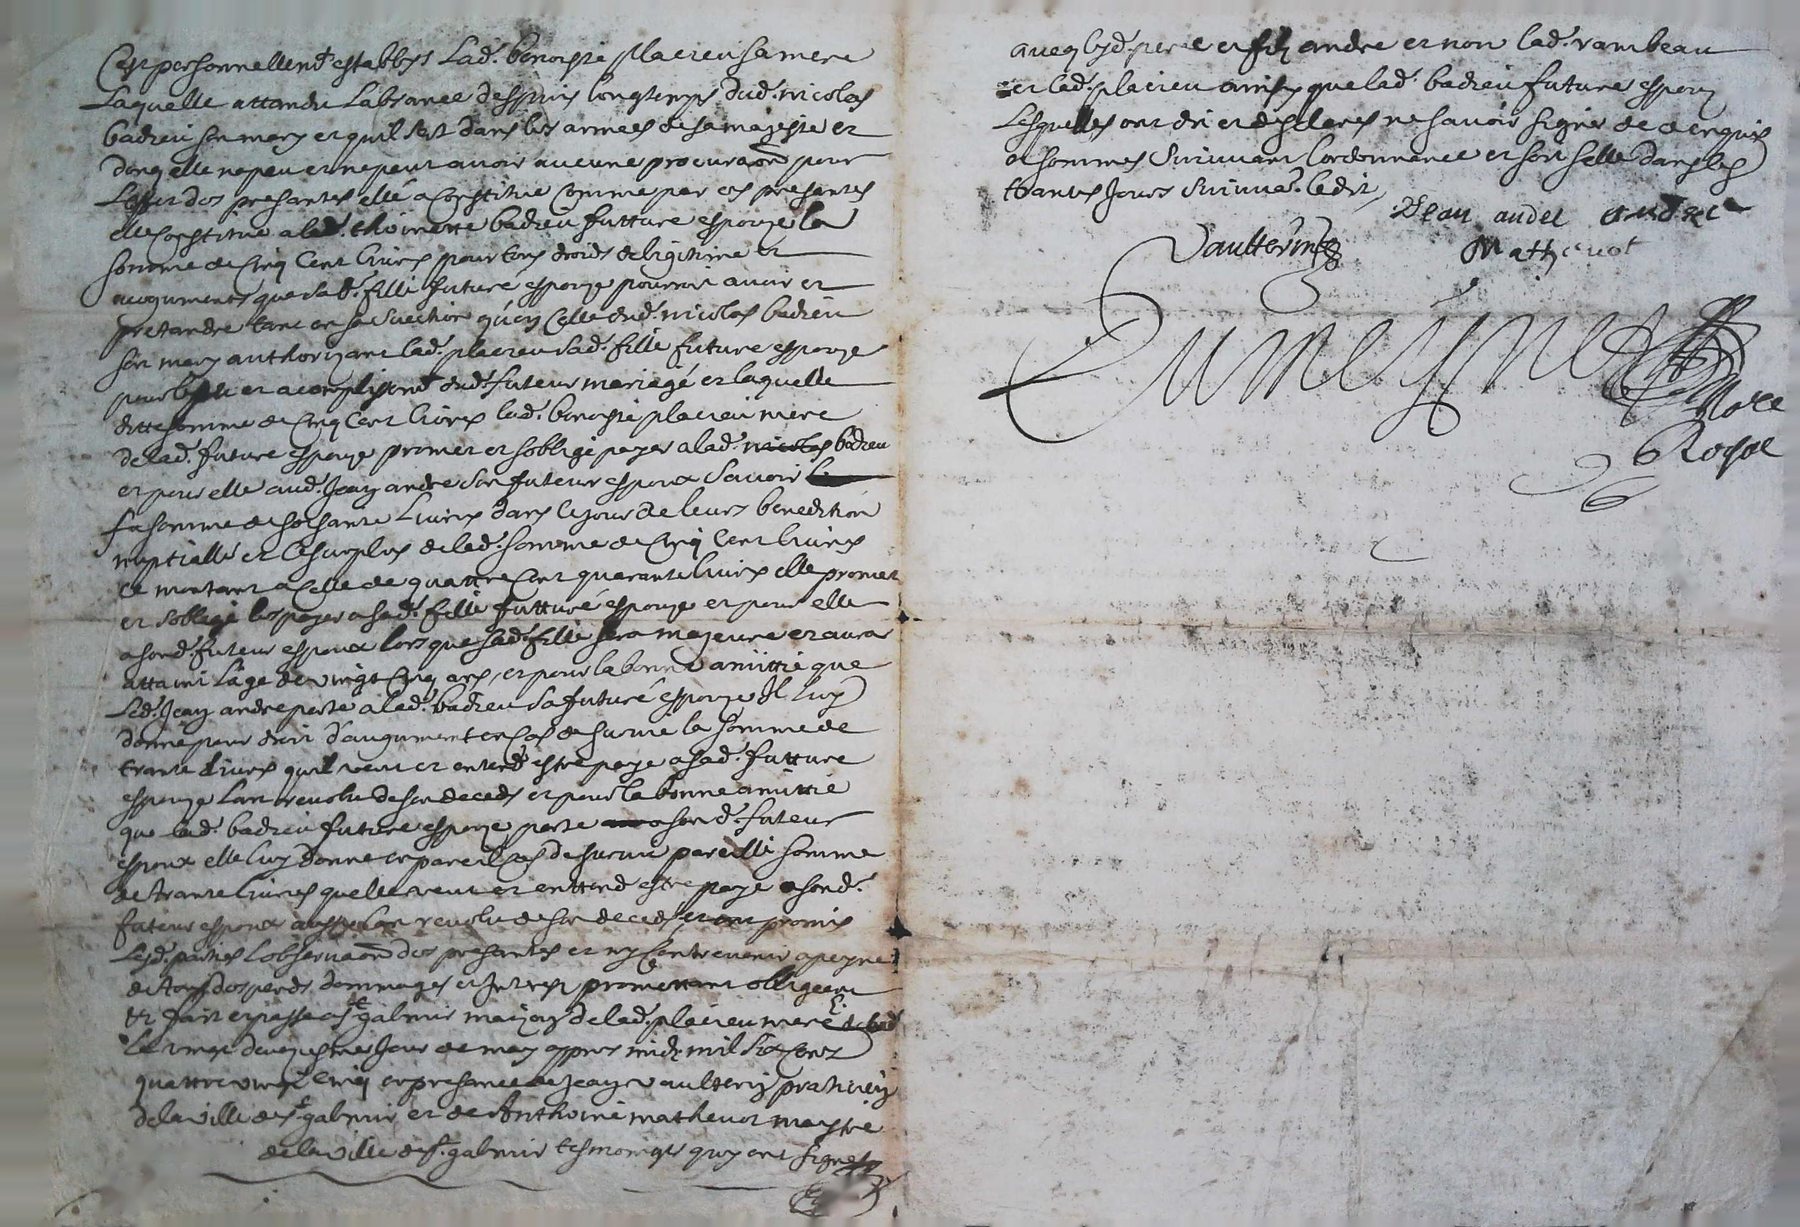 Cest personnellemt establyt Lad. benoiste placieu sa mere
Laquelle attandu Labsance despuis longtemps dud. nicolas
badieu son mary et quil est dans les armees de sa majeste et
donq elle na peu et ne peut avoir aucune procuraon pour
Leffet des presantes elle a constitue comme par ces presantes
elle constitue a lad. thoinette badieu future espouze la
somme de Cinq Cent livres pour tous droicts de legitime et
augumentz que sad. fille future espouze pourroit avoir et
pretandre tant en sa suection qu'en Celle dud. nicolas badieu
son mary authorizant lad. placieu sad. fille future espouze
pour leffet et acomplissemt dud. futeur mariage et laquelle
ditte somme de Cinq Cent livres lad. benoiste placieu mere
de lad. future espouze promet et soblige payer a lad. nicolas badieu
et pour elle aud. Jean andre son futeur espoux savoir
la somme de soisante Livres dans le jour de leurs benedition
nuptialle et le surplus de lad. somme de Cinq Cent livres
ce montant a Celle de quattre Cent quarante livres elle promet
et soblige les payer a sad. fille future espouze et pour elle
a sond. futeur espoux lors que sad. fille sera majeure et aura
attaint l'age de vingt Cinq ans, et pour la bonne amittie que
Led. Jean andre porte a lad. badieu sa future espouze Il luy
donne pour droit d'augument en Cas de survie la somme de
trante livres quil veut et entend estre paye a sad. future
espouze Lan revolu de son deceds et pour la bonne amittie
que lad. badieu future espouze porte a sond. futeur
espoux elle luy donne en pareil Cas de survie pareille somme
de trante livres quelle veut et enttend estre paye a sond.
futeur espoux aussy lan revolu de son deceds, et ont promis
Lesd. parties Lobservaon des presantes et ny Contrevenir a peyne
de tous despends dommages et Interest promettant obligeant
etc fait et passe a St galmier maison de lad. placieu mere
Le vingt jour de may appres midy mil six Cent
quattre vingt Cinq en presance de Jean vaulterin praticien
de la ville de St galmier et de Anthoine mathevot maystre
de la ville de St. galmier tesmoings quy ont signe
avecq lesd. pere et fils andre et non lad. rambeau
et lad. placieu ainsy que lad. badieu future espouze
Lesquelles ont dit et desclares ne savoir signer de ce enquis
et sommes suivant Lordonnance et soit selle dans les
trantes Jours suivat. ledit
Jean andre andre
Vaulterin Mathevot
Dumeysnet Note
Royal